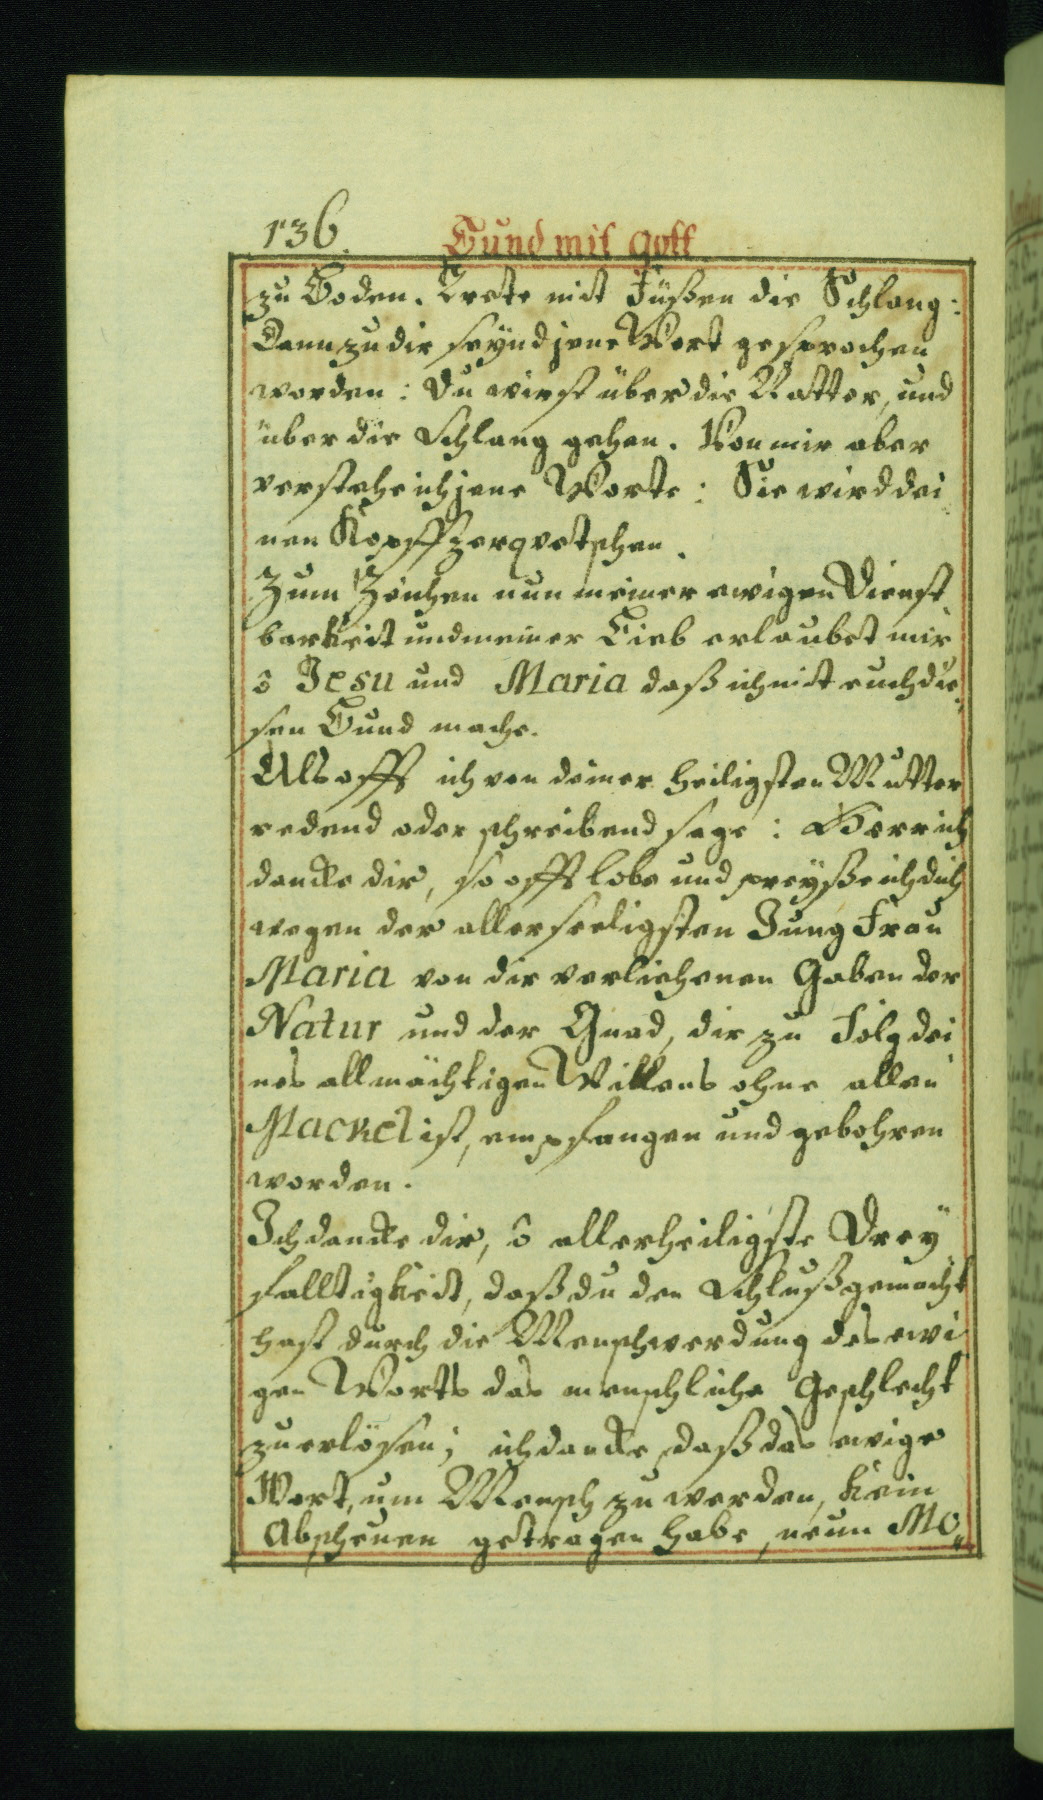 136.
Bund mit Gott
zu Boden. Trete mit Füßen die Schlang:
Dann zu dir seynd jene Wort gesprochen
worden: Du wirst über die Natter, und
über die Schlang gehen. Von mir aber
verstehe ich jene Worte: Sie wird dei
nen Kopff zerqvetschen.
Zum Zeichen nun meiner ewigen Dienst
barkeit und meiner Lieb erlaubet mir
ô Jesu und Maria daß ich mit euch die
sen Bund mache.
Als offt ich von deiner heiligsten Mutter
redend oder schreibend sage: Herr ich
dancke dir, so offt lobe und preyße ich dich
wegen der allerseeligsten Jung Frau
Maria von dir verliehenen Gaben der
Natur und der Gnad, die zu Folg dei
nes allmächtigen Willens ohne allen
Mackel ist, empfangen und gebohren
worden.
Ich dancke dir, ô allerheiligste Drey
falltigkeit, daß du den Schluß gemacht
hast durch die Menschwerdung des ewi
gen Worts das menschliche Geschlecht
zu erlösen; ich dancke daß das ewige
Wort, um Mensch zu werden, kein
Abscheuen getragen habe, neun Mo„